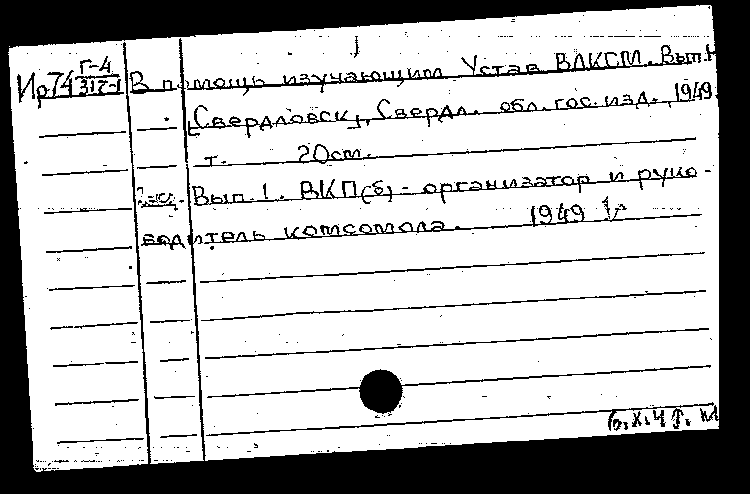 Ир74 Г-4/317-1 В помощь изучающим Устав ВЛКСМ. Вып.
[Свердловск], Свердл. обл. гос. изд., 1949.
т. 20см.
Вып. 1. ВКП(б) - организатор и руко-
водитель комсомола. 1949